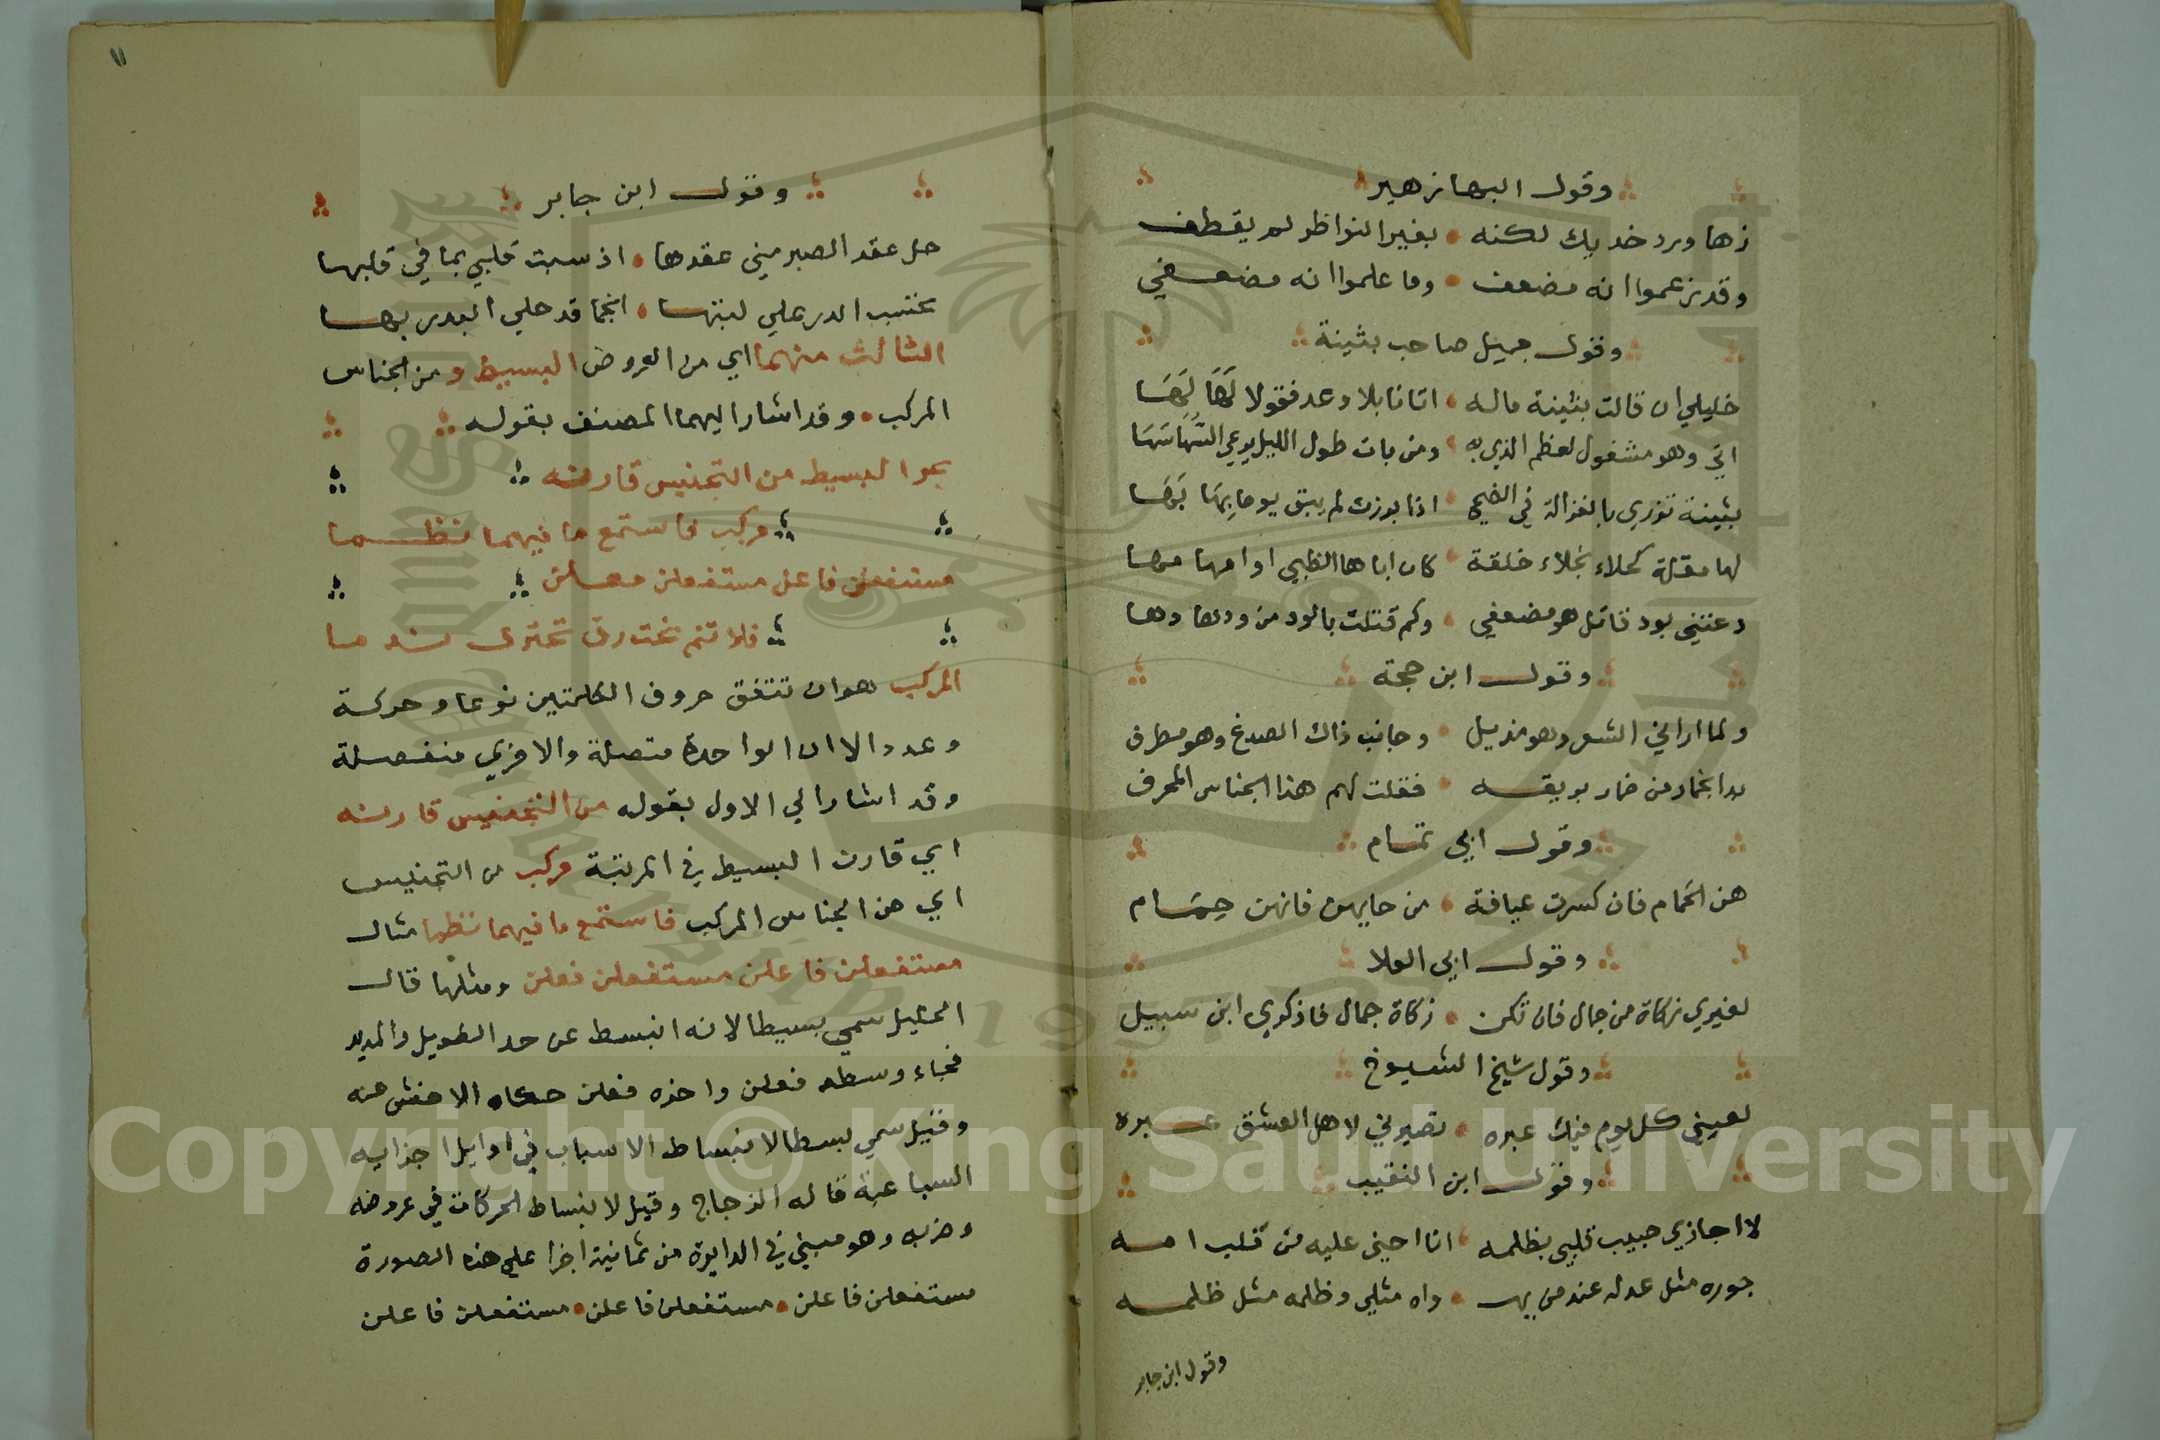 وقول البها زهير
زها ورد خديك لكنه • بغير النواظر لم يقطف
وقد زعموا انه مضعف • وما علموا انه مضعفي
وقول جميل صاحب بثينة
خليلي ان قالت بثينة ماله • اتانا بلا وعد فقولا لَهَا لَهَا
اتى وهو مشغول لعظم الذي به • ومن بات طول الليل يرعى السُّهَا سَهَا
بثينة تزري بالغزالة في الضحى • اذا برزت لم يبق يوما بِهَا بَهَا
لها مقلة كحلاء نجلاء خلقة • كان اباها الظبي او امها مها
دعتني بود قاتل هو مضعفي • وكم قتلت بالود من ودها دها
وقول ابن حجة
ولما اراني الشعر وهو مذيل • وجانب ذاك الصدغ وهو مطرف
بدا بخمار من خمار بريقه • فقلت لهم هذا الجناس المحرف
وقول ابي تمام
هن الحَمام فان كسرت عيافة • من حايهن فانهن حِمَام
وقول ابي العلا
لغيري زكاة من جمال فان تكن • زكاة جمال فاذكري ابن سبيل
وقول شيخ الشيوخ
لعيني كل يوم فيك عبره • تصيرني لاهل العشق عبره
وقول ابن النقيب
لا اجازي حبيب قلبي بظلمه • انا احنى عليه من قلب امه
جوره مثل عدله عند من يهـ • واه مثلي وظلمه مثل ظلمه
وقول ابن جابر
١١
وقول ابن جابر
حل عقد الصبر مني عقدها • اذ سبت قلبي بما في قلبها
تحسب الدر على لبتها • انجما قد حلي البدر بها
الثالث منهما اي من العروض البسيط ومن الجناس
المركب • وقد اشار اليهما المصنف بقوله
بحر البسيط من التجنيس قارنه
مركب فاستمع ما فيهما نظما
مستفعلن فاعلن مستفعلن فعلن
فلا تنم تحت رق تحترق ندما
المركب هو ان تتفق حروف الكلمتين نوعا وحركة
وعدد الا ان الواحدة متصلة والاخري منفصلة
وقد اشار الي الاول بقوله من التجنيس قارنه
اي قارن البسيط في المرتبة مركب من التجنيس
اي من الجناس المركب فاستمع ما فيهما نظما مثال
مستفعلن فاعلن مستفعلن فعلن ومثلها قال
الخليل سمي بسيطا لانه انبسط عن حد الطويل والمديد
فجاء وسطه فعلن واخره فعلن حكاه الاخفش عنه
وقيل سمي بسطا لانبساط الاسباب في اوايل اجزايه
السباعية قاله الزجاج وقيل لانبساط الحركات في عروضه
وضربه وهو مبني في الدايرة من ثمانية اجزا علي هذه الصورة
مستفعلن فاعلن • مستفعلن فاعلن • مستفعلن فاعلن
Copyright © King Saud University